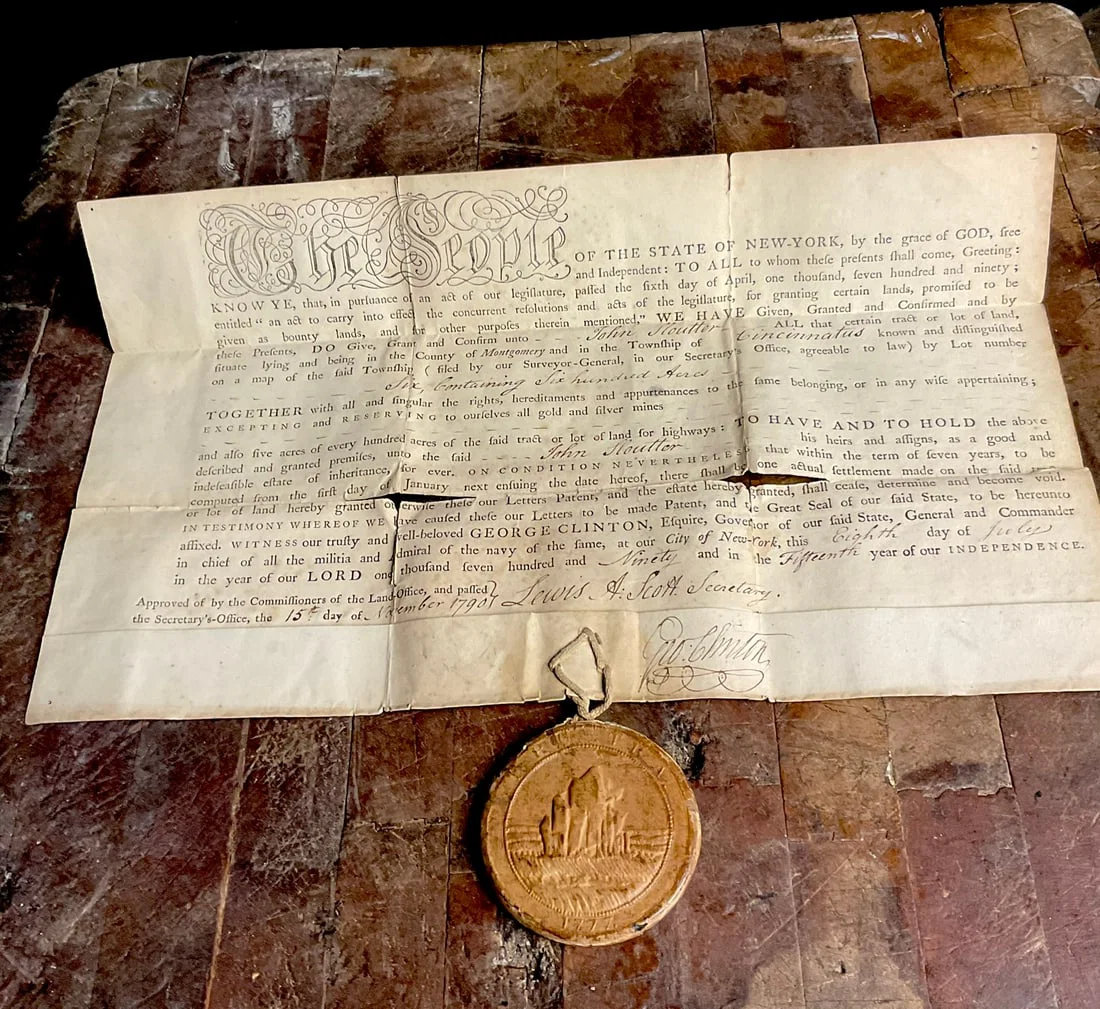 The People OF THE STATE OF NEW-YORK, by the grace of GOD, free
and Independent: TO ALL to whom theſe preſents ſhall come, Greeting:
KNOW YE, that, in purſuance of an act of our legiſlature, paſſed the ſixth day of April, one thouſand, ſeven hundred and ninety;
entitled “ an act to carry into effect the concurrent reſolutions and acts of the legiſlature, for granting certain lands, promiſed to be
given as bounty lands, and for other purpoſes therein mentioned.” WE HAVE Given, Granted and Confirmed and by
theſe Preſents, DO Give, Grant and Confirm unto - - - John Stoutter - ALL that certain tract or lot of land,
ſituate lying and being in the County of Montgomery and in the Townſhip of Cincinnatus known and diſtinguiſhed
on a map of the ſaid Townſhip ( filed by our Surveyor-General, in our Secretary's Office, agreeable to law) by Lot number
Six Containing Six hundred Acres
TOGETHER with all and ſingular the rights, hereditaments and appurtenances to the ſame belonging, or in any wiſe appertaining;
EXCEPTING and RESERVING to ourſelves all gold and ſilver mines
and alſo five acres of every hundred acres of the ſaid tract or lot of land for highways: TO HAVE AND TO HOLD the above
deſcribed and granted premiſes, unto the ſaid - - - John Stoutter his heirs and aſſigns, as a good and
indefeaſible eſtate of inheritance, for ever. ON CONDITION NEVERTHELESS that within the term of ſeven years, to be
computed from the firſt day of January next enſuing the date hereof, there ſhall be one actual ſettlement made on the ſaid
or lot of land hereby granted otherwiſe theſe our Letters Patent, and the eſtate hereby granted, ſhall ceaſe, determine and become void.
IN TESTIMONY WHEREOF WE have cauſed theſe our Letters to be made Patent, and the Great Seal of our ſaid State, to be hereunto
affixed. WITNESS our truſty and well-beloved GEORGE CLINTON, Eſquire, Governor of our ſaid State, General and Commander
in chief of all the militia and admiral of the navy of the ſame, at our City of New-York, this Eighth day of July
in the year of our LORD one thouſand ſeven hundred and Ninety and in the Fifteenth year of our INDEPENDENCE.
Approved of by the Commiſſioners of the Land Office, and paſſed
the Secretary's-Office, the 15th day of November 1790 Lewis A: Scott Secretary.
Geo: Clinton